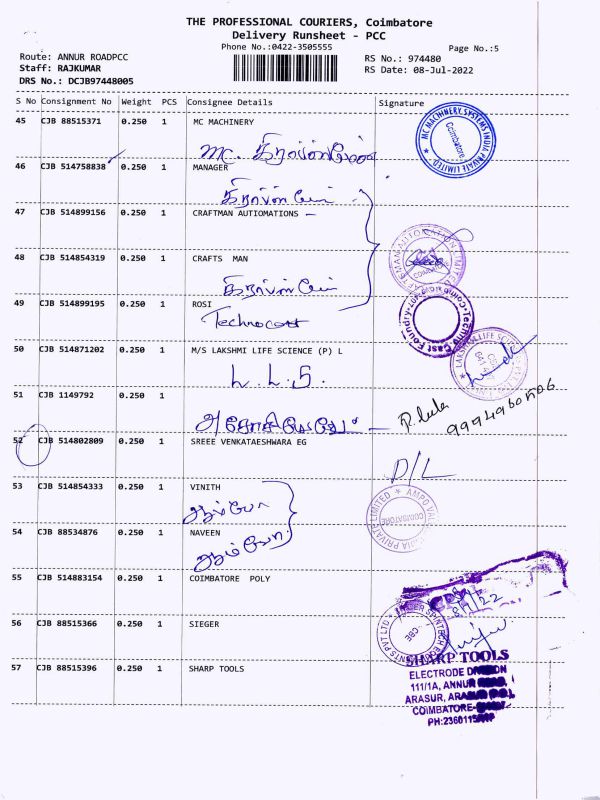 THE PROFESSIONAL COURIERS, Coimbatore
Delivery Runsheet - PCC
Phone No.:0422-3505555
Page No.:5
Route: ANNUR ROADPCC
RS No.: 974480
Staff: RAJKUMAR
RS Date: 08-Jul-2022
DRS No.: DCJB97448005
S No Consignment No Weight PCS Consignee Details Signature
45 CJB 88515371 0.250 1 MC MACHINERY
MC MACHINERY SYSTEMS INDIA PRIVATE LIMITED
Coimbatore
MC.
46 CJB 514758838 0.250 1 MANAGER
47 CJB 514899156 0.250 1 CRAFTMAN AUTIOMATIONS
48 CJB 514854319 0.250 1 CRAFTS MAN
49 CJB 514899195 0.250 1 ROSI
Technocast
50 CJB 514871202 0.250 1 M/S LAKSHMI LIFE SCIENCE (P) L
L. L. S.
51 CJB 1149792 0.250 1
52 CJB 514802809 0.250 1 SREEE VENKATAESHWARA EG
D/L
53 CJB 514854333 0.250 1 VINITH
54 CJB 88534876 0.250 1 NAVEEN
COIMBATORE
55 CJB 514883154 0.250 1 COIMBATORE POLY
56 CJB 88515366 0.250 1 SIEGER
CBE
57 CJB 88515396 0.250 1 SHARP TOOLS
SHARP TOOLS
ELECTRODE DIVISION
111/1A, ANNUR
ARASUR,
COIMBATORE